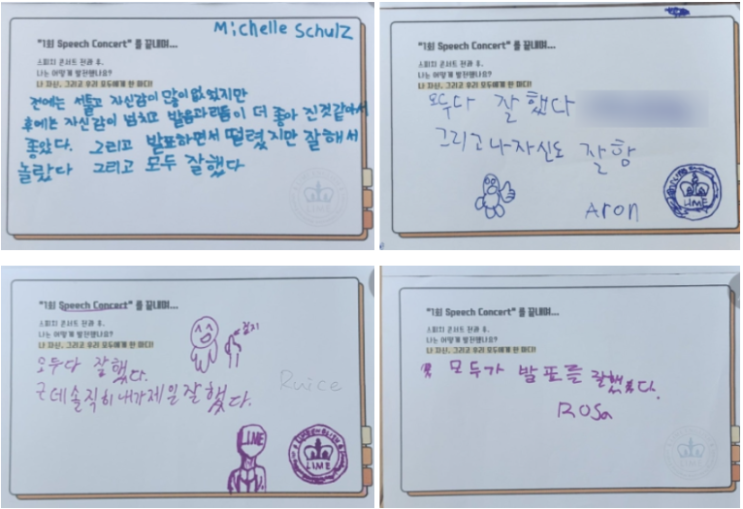 Michelle Schulz
"1회 Speech Concert" 를 끝내며...
스피치 콘서트 전과 후,
나는 어떻게 발전했나요?
나 자신, 그리고 우리 모두에게 한 마디!
전에는 서툴고 자신감이 많이 없었지만
후에는 자신감이 넘치고 발음과 리듬이 더 좋아 진것같아서
좋았다. 그리고 발표하면서 떨렸지만 잘해서
놀랐다 그리고 모두 잘했다
"1회 Speech Concert" 를 끝내며...
스피치 콘서트 전과 후,
나는 어떻게 발전했나요?
나 자신, 그리고 우리 모두에게 한 마디!
모두다 잘했다
그리고 나자신도 잘함
LIME
Aron
"1회 Speech Concert" 를 끝내며...
스피치 콘서트 전과 후,
나는 어떻게 발전했나요?
나 자신, 그리고 우리 모두에게 한 마디!
엄지
모두다 잘했다.
Ruice
근데솔직히내가제일잘했다.
LIME
LIME
"1회 Speech Concert" 를 끝내며...
스피치 콘서트 전과 후,
나는 어떻게 발전했나요?
나 자신, 그리고 우리 모두에게 한 마디!
모두가 발표를 잘했다.
Rosa
LIME